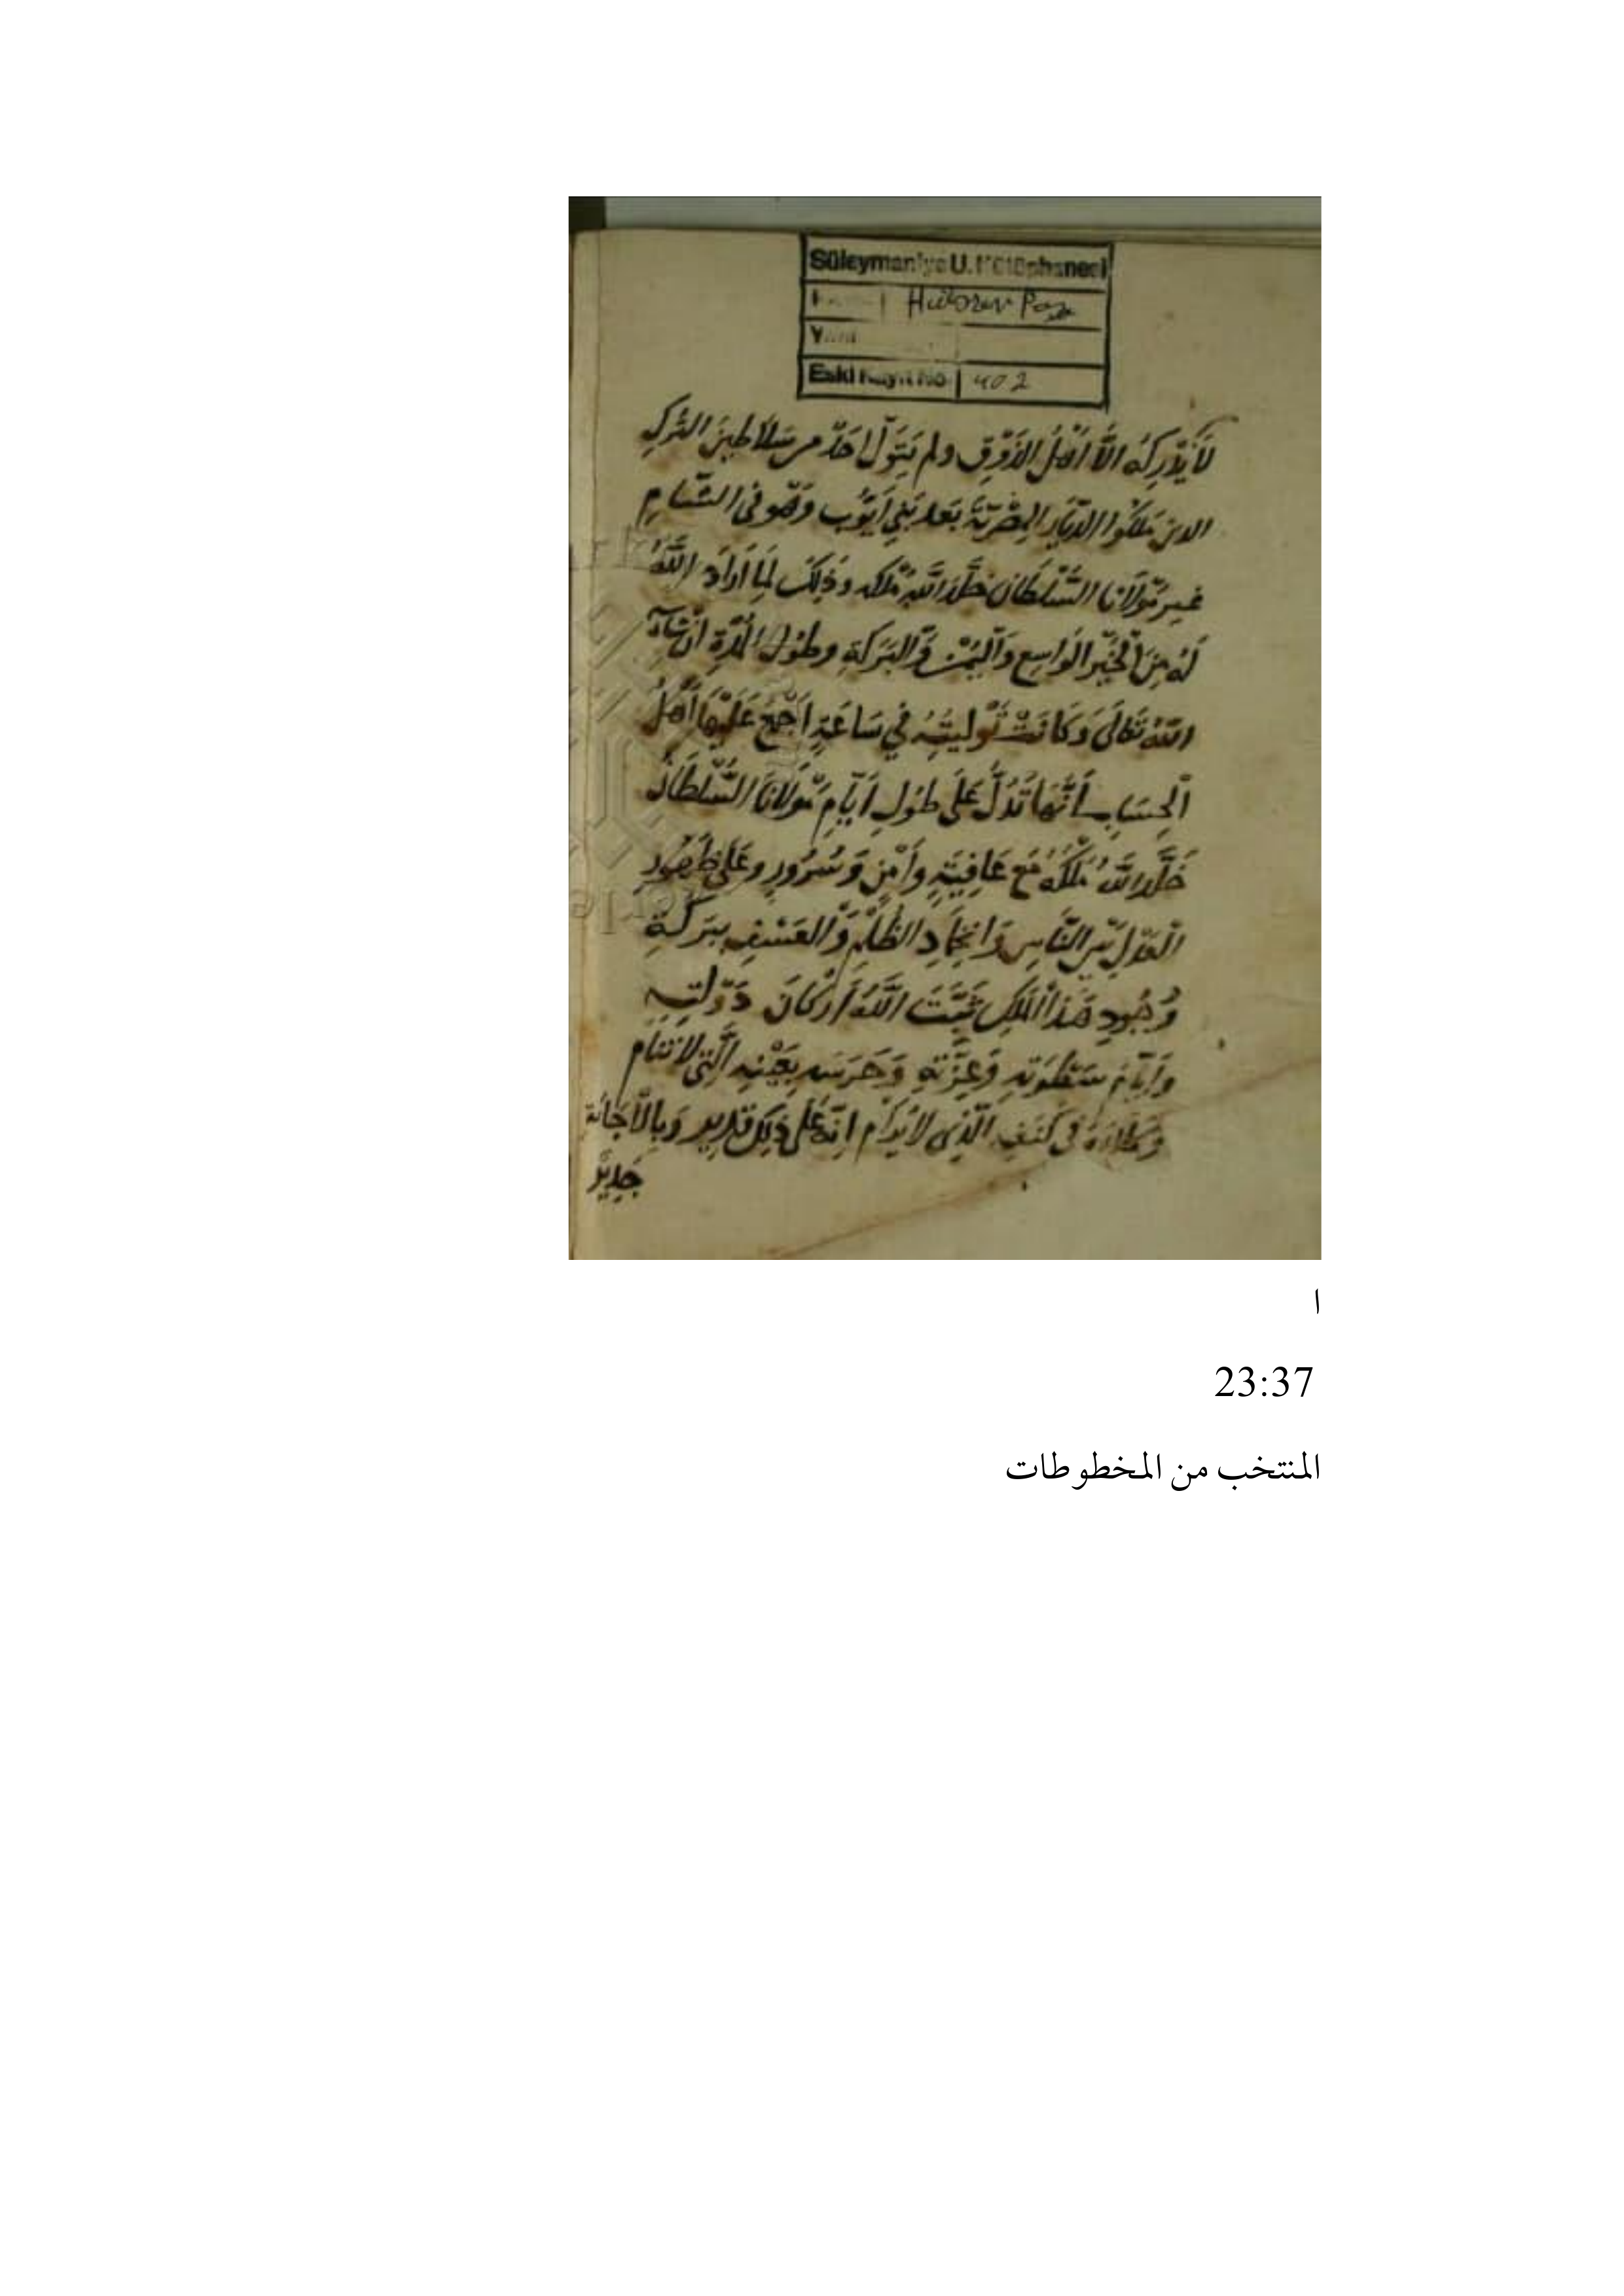 Süleymaniye U. Kütüphanesi
Hüsrev Paşa
Eski Kayıt No 402
لَا يُدْرِكُهُ اِلَّا اَهْلُ الذَّوْقِ ولم يَتَوَلَّ اَحَدٌ من سَلَاطِينِ التُّركِ
الدين مَلَكُوا الدِّيَارِ المِصْرِيَّةَ بَعد بَنِي اَيُّوب وَهُو في الشَّامِ
غير مَوْلَانَا السُّلْطَان خَلَّدَ اللَّهُ مُلْكه وذَلِكَ لِمَا اَرَادَ اللَّهُ
لَهُ مِنَ الْخَيْرِ الْوَاسِع وَالْيُمْنِ وَالْبَرَكَةِ وطُولِ الْمُدَّةِ اِنْ شَآءَ
اللَّهُ تَعَالَى وَكَانَتْ تَوْلِيَتُهُ فِي سَاعَةٍ اَجْمَعَ عَلَيْهَا اَهْلُ
الْحِسَابِ اَنَّهَا تَدُلُّ عَلَى طُولِ اَيَّامِ مَوْلَانَا السُّلْطَانُ
خَلَّدَ اللَّهُ مُلْكَهُ مَعَ عَافِيَةٍ وَاَمْنٍ وَسُرُورٍ وعَلَى ظُهُورِ
الْعَدْلِ بَيْنَ النَّاسِ وَاِخْمَادِ الظُّلْمِ وَالْعَسْفِ بِبَرَكَةِ
وُجُودِ هَذَا الْمَلِكِ ثَبَّتَ اللَّهُ اَرْكَانَ دَوْلَتِهِ
وَاَيَّامَ سَطْوَتِهِ وَعِزَّتِهِ وَحَرَسَه بِعَيْنِهِ الَّتِي لا تَنَام
فى كَنَفِهِ الَّذِى لا يُرَام اِنَّهُ عَلَى ذَلِكَ قَدِير وَبِالْاَجَابَةِ
جَدِيرٌ
ا
23:37
المنتخب من المخطوطات